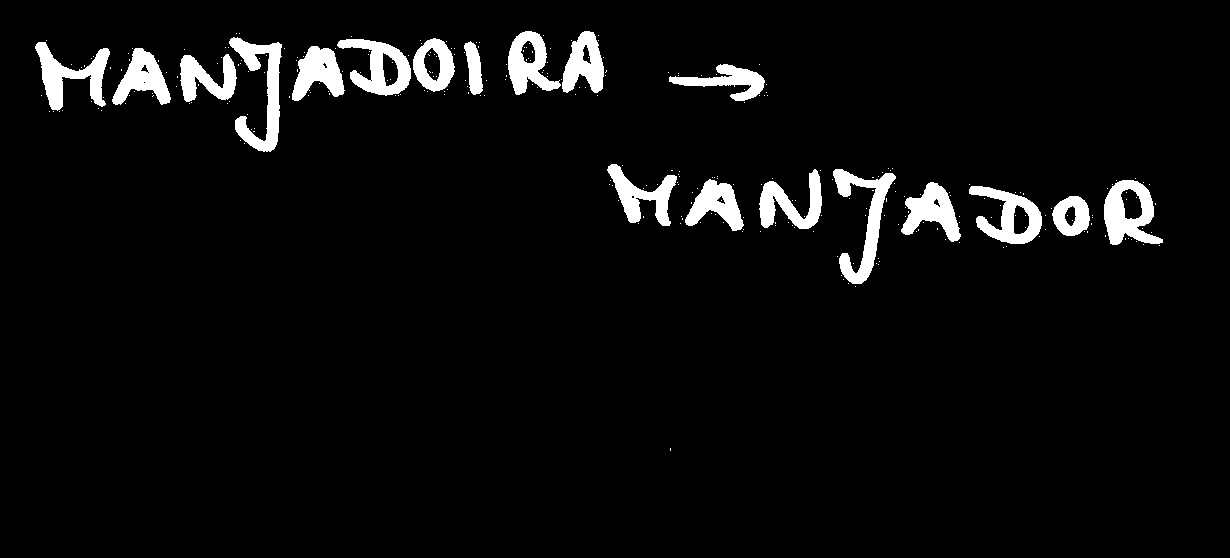 MANJADOIRA →
MANJADOR